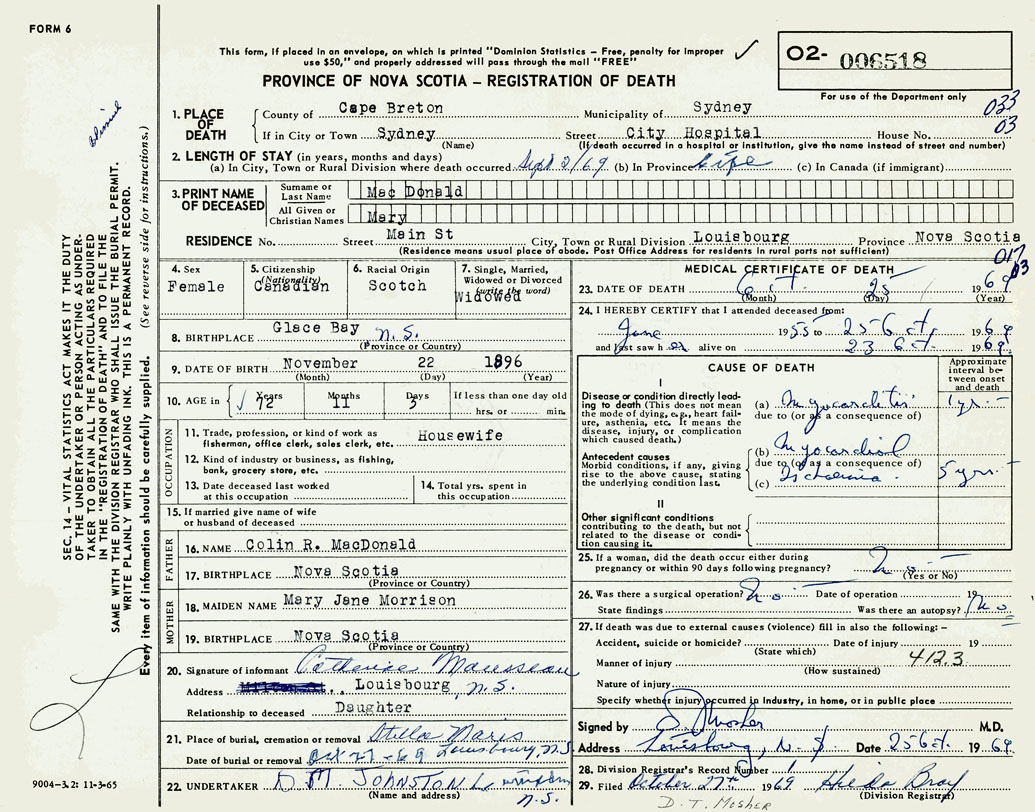 FORM 6
This form, if placed in an envelope, on which is printed "Dominion Statistics — Free, penalty for improper
use $50," and properly addressed will pass through the mail "FREE"
PROVINCE OF NOVA SCOTIA — REGISTRATION OF DEATH
O2- 006518
For use of the Department only
033
03
1. PLACE OF DEATH
County of Cape Breton Municipality of Sydney
If in City or Town Sydney Street City Hospital House No.
(Name) (If death occurred in a hospital or institution, give the name instead of street and number)
2. LENGTH OF STAY (in years, months and days)
(a) In City, Town or Rural Division where death occurred Sept 2/69 (b) In Province Life (c) In Canada (if immigrant)
3. PRINT NAME OF DECEASED
Surname or Last Name Mac Donald
All Given or Christian Names Mary
RESIDENCE No. Street Main St City, Town or Rural Division Louisbourg Province Nova Scotia
(Residence means usual place of abode. Post Office Address for residents in rural parts not sufficient)
017
03
4. Sex
Female
5. Citizenship
(Nationality)
Canadian
6. Racial Origin
Scotch
7. Single, Married,
Widowed or Divorced
(write the word)
Widowed
8. BIRTHPLACE Glace Bay N.S.
(Province or Country)
9. DATE OF BIRTH November 22 1896
(Month) (Day) (Year)
10. AGE in Years Months Days If less than one day old
72 11 3 hrs. or min.
OCCUPATION
11. Trade, profession, or kind of work as
fisherman, office clerk, sales clerk, etc. Housewife
12. Kind of industry or business, as fishing,
bank, grocery store, etc.
13. Date deceased last worked
at this occupation
14. Total yrs. spent in
this occupation
15. If married give name of wife
or husband of deceased
FATHER
16. NAME Colin R. MacDonald
17. BIRTHPLACE Nova Scotia
(Province or Country)
MOTHER
18. MAIDEN NAME Mary Jane Morrison
19. BIRTHPLACE Nova Scotia
(Province or Country)
20. Signature of informant Catherine
Address Louisbourg, N.S.
Relationship to deceased Daughter
21. Place of burial, cremation or removal Stella Maris
Date of burial or removal Oct 27-69 Louisbourg, N.S.
22. UNDERTAKER D M JOHNSTON
(Name and address) N.S.
MEDICAL CERTIFICATE OF DEATH
23. DATE OF DEATH Oct. 25 1969
(Month) (Day) (Year)
24. I HEREBY CERTIFY that I attended deceased from:
June 1955 to 25 Oct. 1969
and last saw h er alive on 23 Oct. 1969.
CAUSE OF DEATH
Approximate
interval be-
tween onset
and death
I
Disease or condition directly lead-
ing to death (This does not mean
the mode of dying, e.g., heart fail-
ure, asthenia, etc. It means the
disease, injury, or complication
which caused death.)
(a) Myocarditis 1 yr.
due to (or as a consequence of)
Antecedent causes
Morbid conditions, if any, giving
rise to the above cause, stating
the underlying condition last.
(b) Myocardial
due to (or as a consequence of)
(c) Ischemia. 5 yrs.
II
Other significant conditions
contributing to the death, but not
related to the disease or condi-
tion causing it.
25. If a woman, did the death occur either during
pregnancy or within 90 days following pregnancy? no
(Yes or No)
26. Was there a surgical operation? no Date of operation 19
State findings Was there an autopsy? No
27. If death was due to external causes (violence) fill in also the following:-
Accident, suicide or homicide? Date of injury 19
(State which)
Manner of injury 412.3
(How sustained)
Nature of injury
Specify whether injury occurred in industry, in home, or in public place
Signed by D. Mosher M.D.
Address Louisbourg, N.S. Date 25 Oct. 1969.
28. Division Registrar's Record Number 1
29. Filed October 27th 1969 Hilda Bray
(Division Registrar)
D. T. MOSHER
SEC. 14 — VITAL STATISTICS ACT MAKES IT THE DUTY
OF THE UNDERTAKER OR PERSON ACTING AS UNDER-
TAKER TO OBTAIN ALL THE PARTICULARS REQUIRED
IN THE "REGISTRATION OF DEATH" AND TO FILE THE
SAME WITH THE DIVISION REGISTRAR WHO SHALL ISSUE THE BURIAL PERMIT.
WRITE PLAINLY WITH UNFADING INK. THIS IS A PERMANENT RECORD.
Every item of information should be carefully supplied. (See reverse side for instructions.)
9004-3.2: 11-3-65